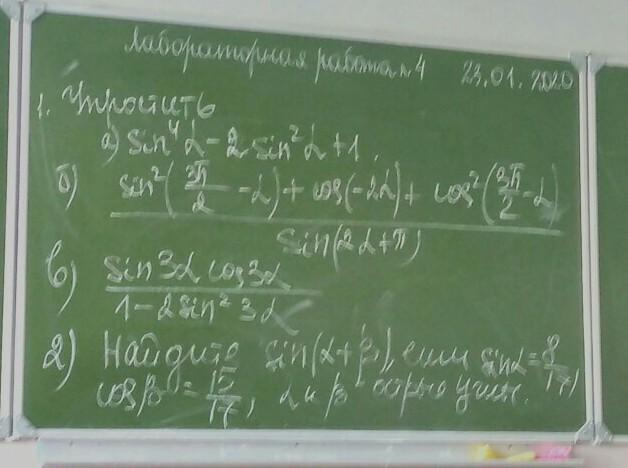 Лабораторная работа № 4 23.01.2020
1. Упростить
а) sin⁴α - 2 sin²α + 1.
б) (sin²(3π/2 - α) + cos(-2α) + cos²(3π/2 - α)) / sin(2α + π)
в) (sin3α cos3α) / (1 - 2sin²3α)
2) Найдите sin(α+β), если sinα = 8/17,
cosβ = 15/17, α и β острые углы.